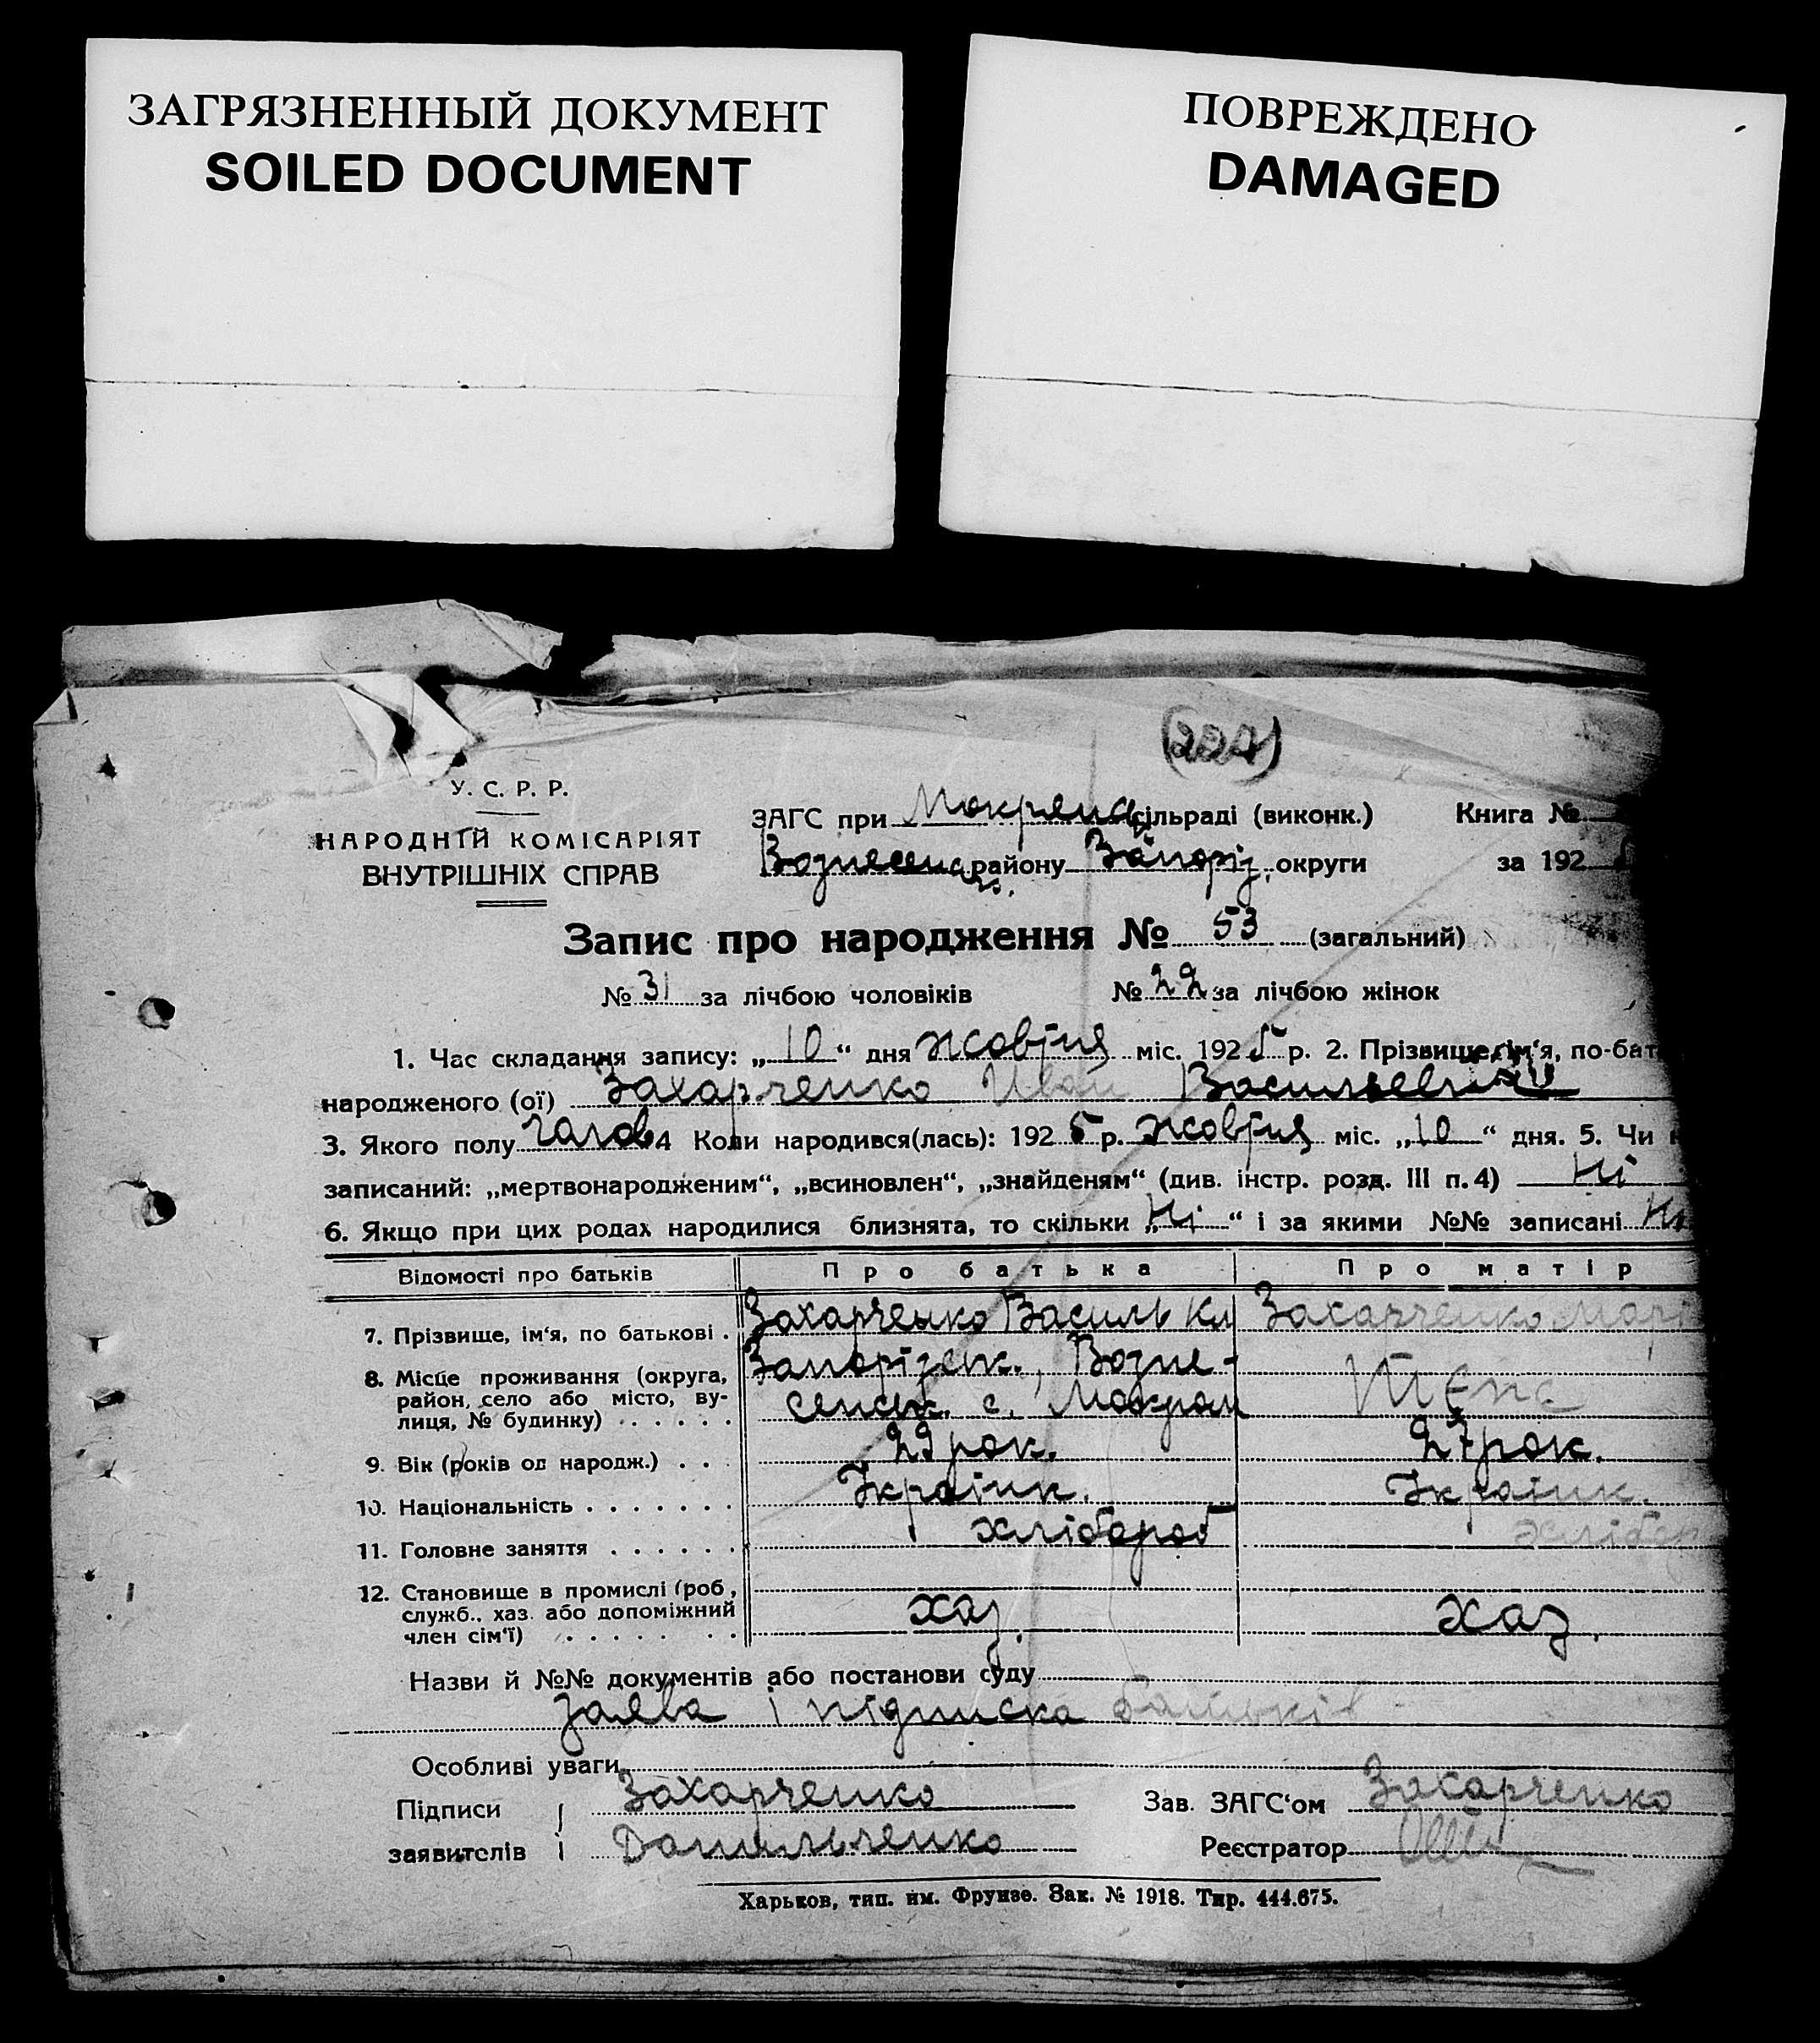 ЗАГРЯЗНЕННЫЙ ДОКУМЕНТ
SOILED DOCUMENT
ПОВРЕЖДЕНО
DAMAGED
У. С. Р. Р.
НАРОДНІЙ КОМІСАРІЯТ
ВНУТРІШНІХ СПРАВ
ЗАГС при Мокрянс сільраді (виконк.) Книга №
Вознесенськ. району Запоріз. округи за 1925
Запис про народження № 53 (загальний)
№ 31 за лічбою чоловіків № 22 за лічбою жінок
1. Час складання запису: „10“ дня жовтня міс. 1925 р. 2. Прізвище, ім‘я, по-бат
народженого (ої) Захарченко Иван
3. Якого полу чолов 4 Коли народився(лась): 1925 р. жовтня міс. „10“ дня. 5. Чи
записаний: „мертвонародженим“, „всиновлен“, „знайденям“ (див. інстр. розд. III п. 4) Ні
6. Якщо при цих родах народилися близнята, то скільки „Ні“ і за якими №№ записані Ні
Відомості про батьків Про батька Про матір
7. Прізвище, ім‘я, по батькові . Захарченко Василь Кл Захарченко Мар
8. Місце проживання (округа, район, село або місто, вулиця, № будинку) . . . . . Запорізськ., Возне-
сенськ. с. Мокром
9. Вік (років од народж.) . . . 29 рок. 27 рок.
10. Національність . . . . . . . Українк. Українк.
11. Головне заняття . . . . . . хлібороб хлібор
12. Становище в промислі (роб., служб., хаз. або допоміжний член сім‘ї) . . . . . . . хаз. хаз.
Назви й №№ документів або постанови суду
заява і підписка батьків
Особливі уваги
Підписи Захарченко Зав. ЗАГС‘ом Захарченко
заявителів Данильченко Реєстратор
Харьков, тип. им. Фрунзе. Зак. № 1918. Тир. 444.675.